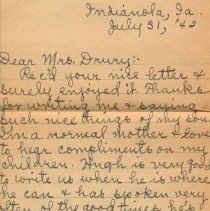 Indianola, Ia.
July 31, '42
Dear Mrs. Drury:-
Rec'd your nice letter &
surely enjoyed it. Thanks
for writing me & saying
such nice things of my son.
I'm a normal mother & love
to hear compliments on my
children. Hugh is very good
to write us when he is where
he can & has spoken very
often of the good things he's